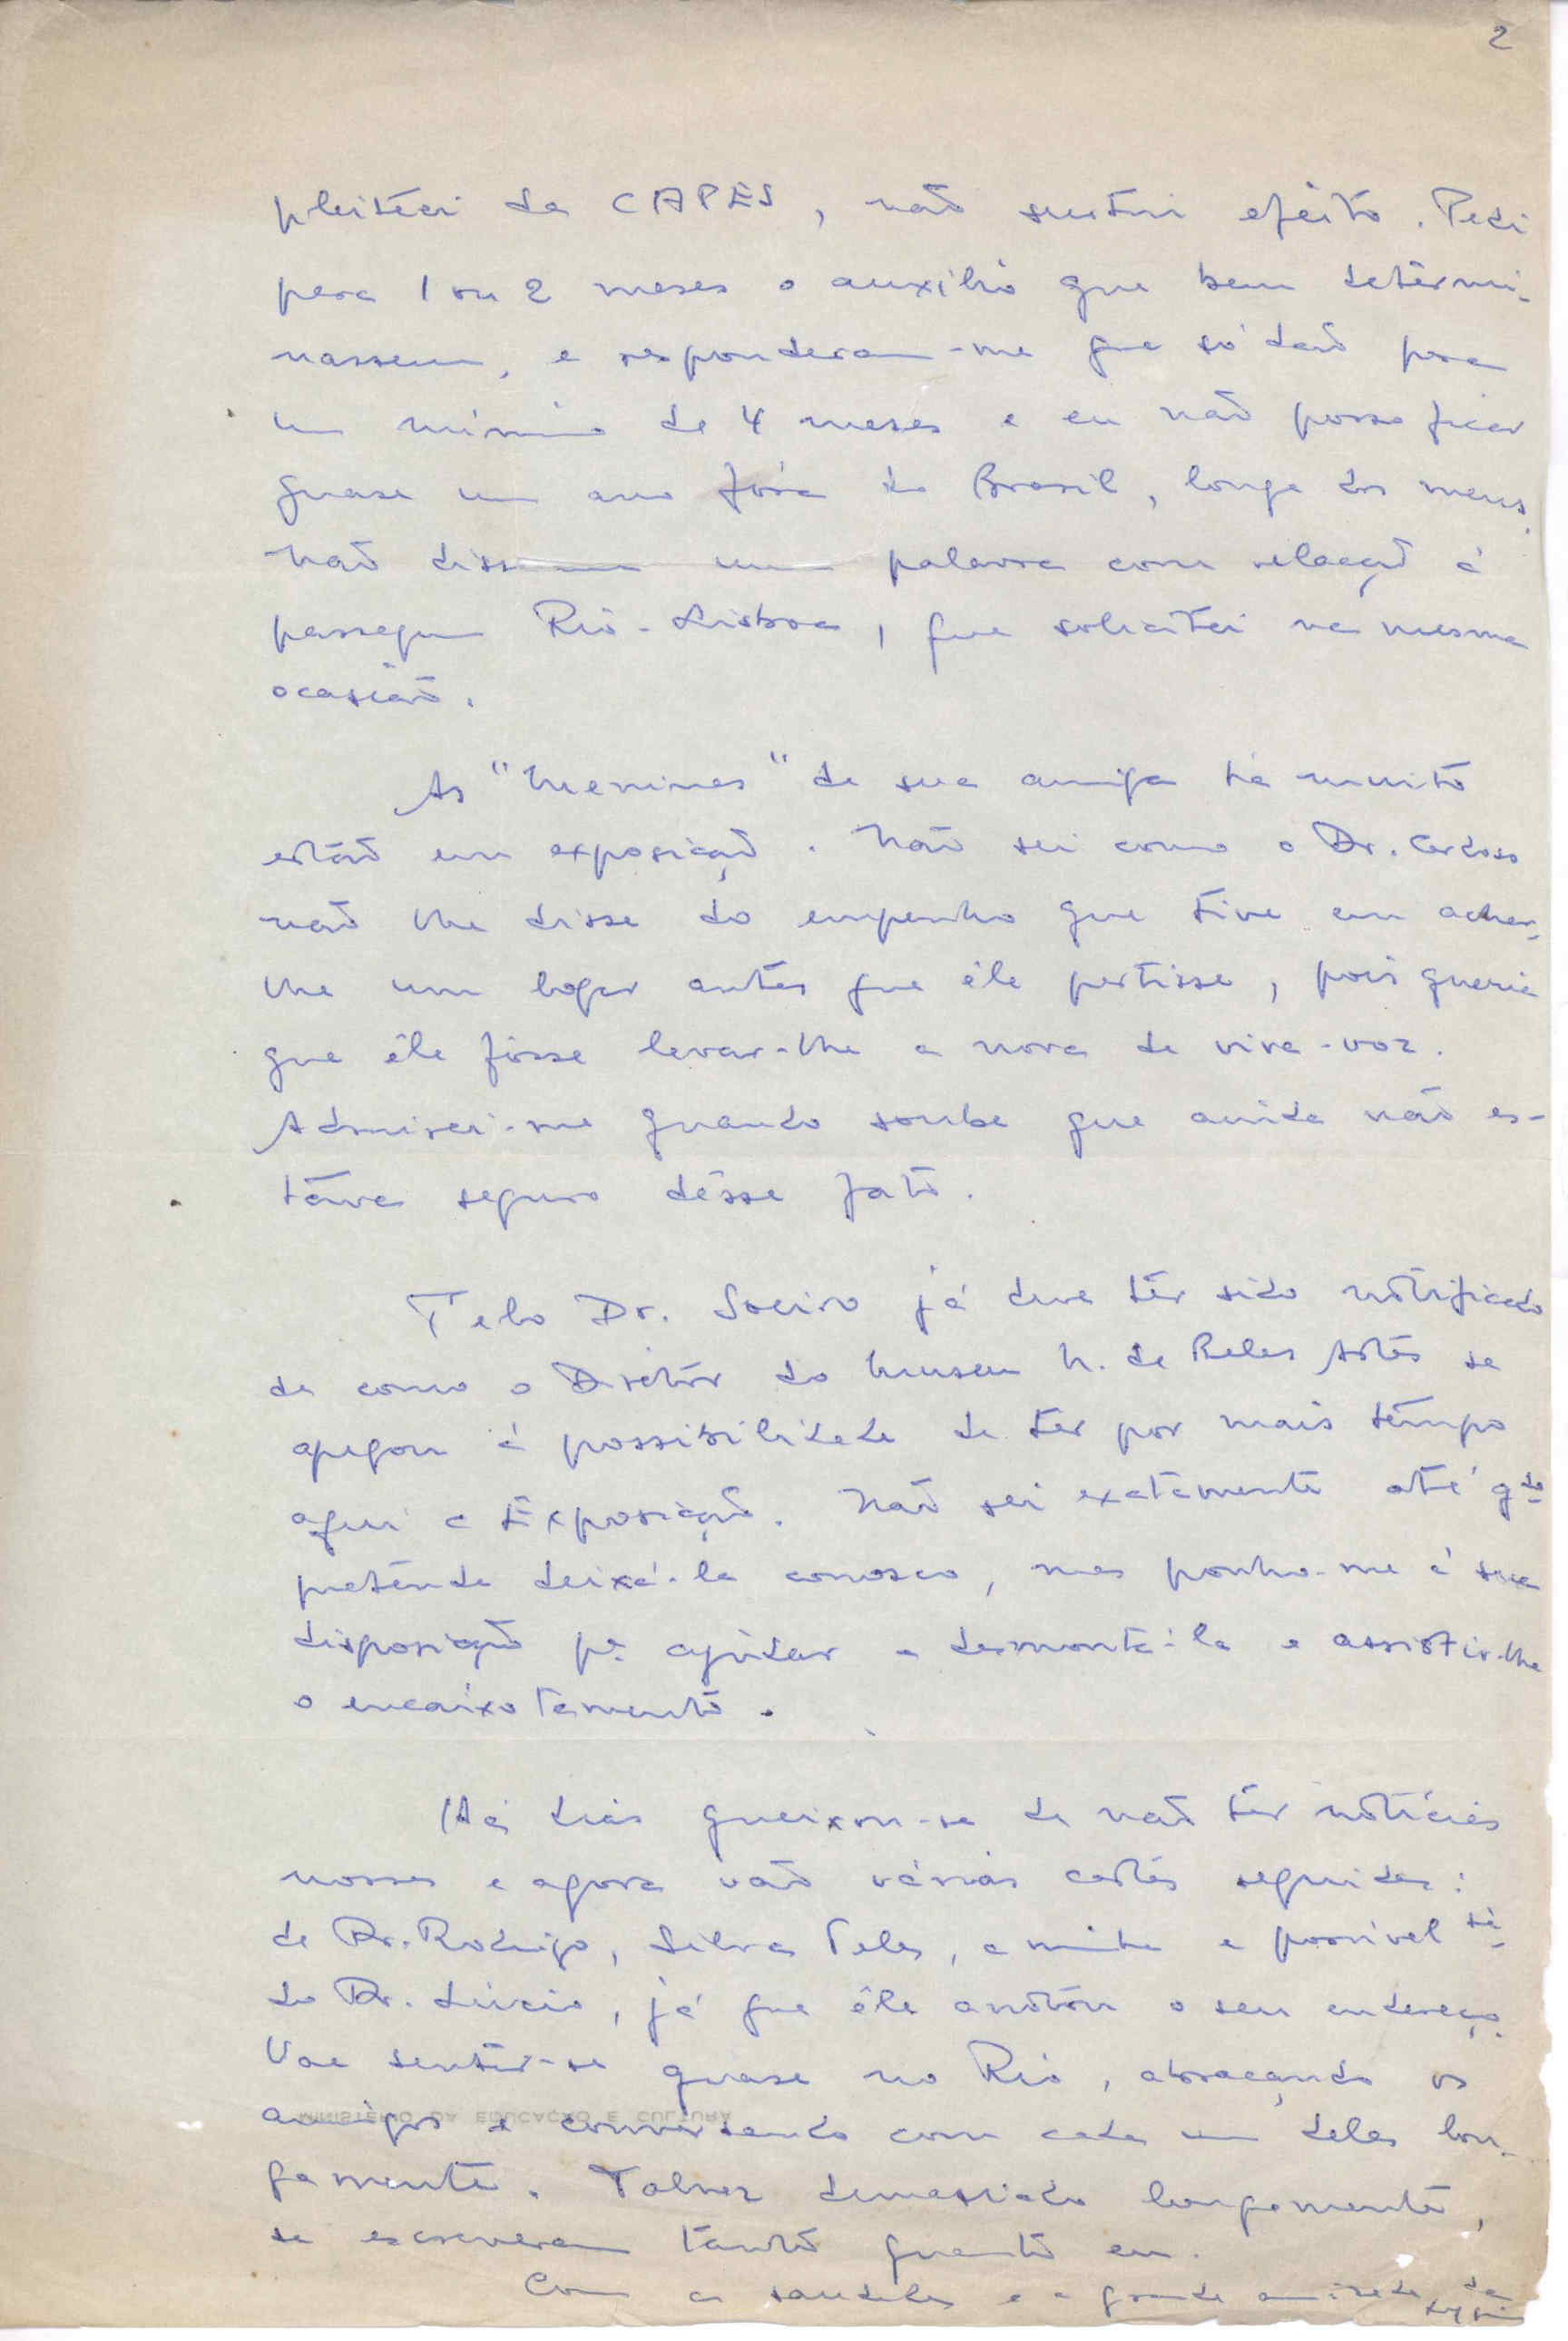 2
pleiteei da CAPES, não surtiu efeito. Pedi
para 1 ou 2 meses o auxílio que bem determi-
nassem, e responderam-me que só dão para
um mínimo de 4 meses e eu não posso ficar
quase um ano fóra do Brasil, longe dos meus.
Não disseram uma palavra com relação à
passagem Rio-Lisboa, que solicitei na mesma
ocasião.
As "Meninas" de sua amiga há muito
estão em exposição. Não sei como o Dr. Cardoso
não lhe disse do empenho que tive em achar-
lhe um lugar antes que êle partisse, pois queria
que êle fôsse levar-lhe a nova de viva-voz.
Admirei-me quando soube que ainda não es-
tava seguro dêsse fato.
Pelo Dr. Soeiro já deve ter sido notificado
de como o Diretor do Museu N. de Belas Artes se
apegou à possibilidade de ter por mais tempo
aqui a Exposição. Não sei exatamente até qdo
pretende deixá-la conosco, mas ponho-me à sua
disposição pa ajudar a desmontá-la e assistir-lhe
o encaixotamento.
Há dias queixou-se de não ter notícias
nossas e agora vão várias cartas seguidas:
de Dr. Rodrigo, Silva Teles, a minha e possível te
do Dr. Lúcio, já que êle anotou o seu endereço.
Vae sentir-se quase no Rio, abraçando os
amigos e conversando com cada um deles lon-
gamente. Talvez demasiado longamente,
se escreveram tanto quanto eu.
Com as saudades e a grande amizade da
MINISTÉRIO DA EDUCAÇÃO E CULTURA